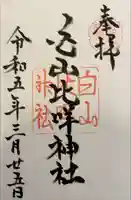 奉拝
白山比咩神社
令和五年三月廿五日
白山